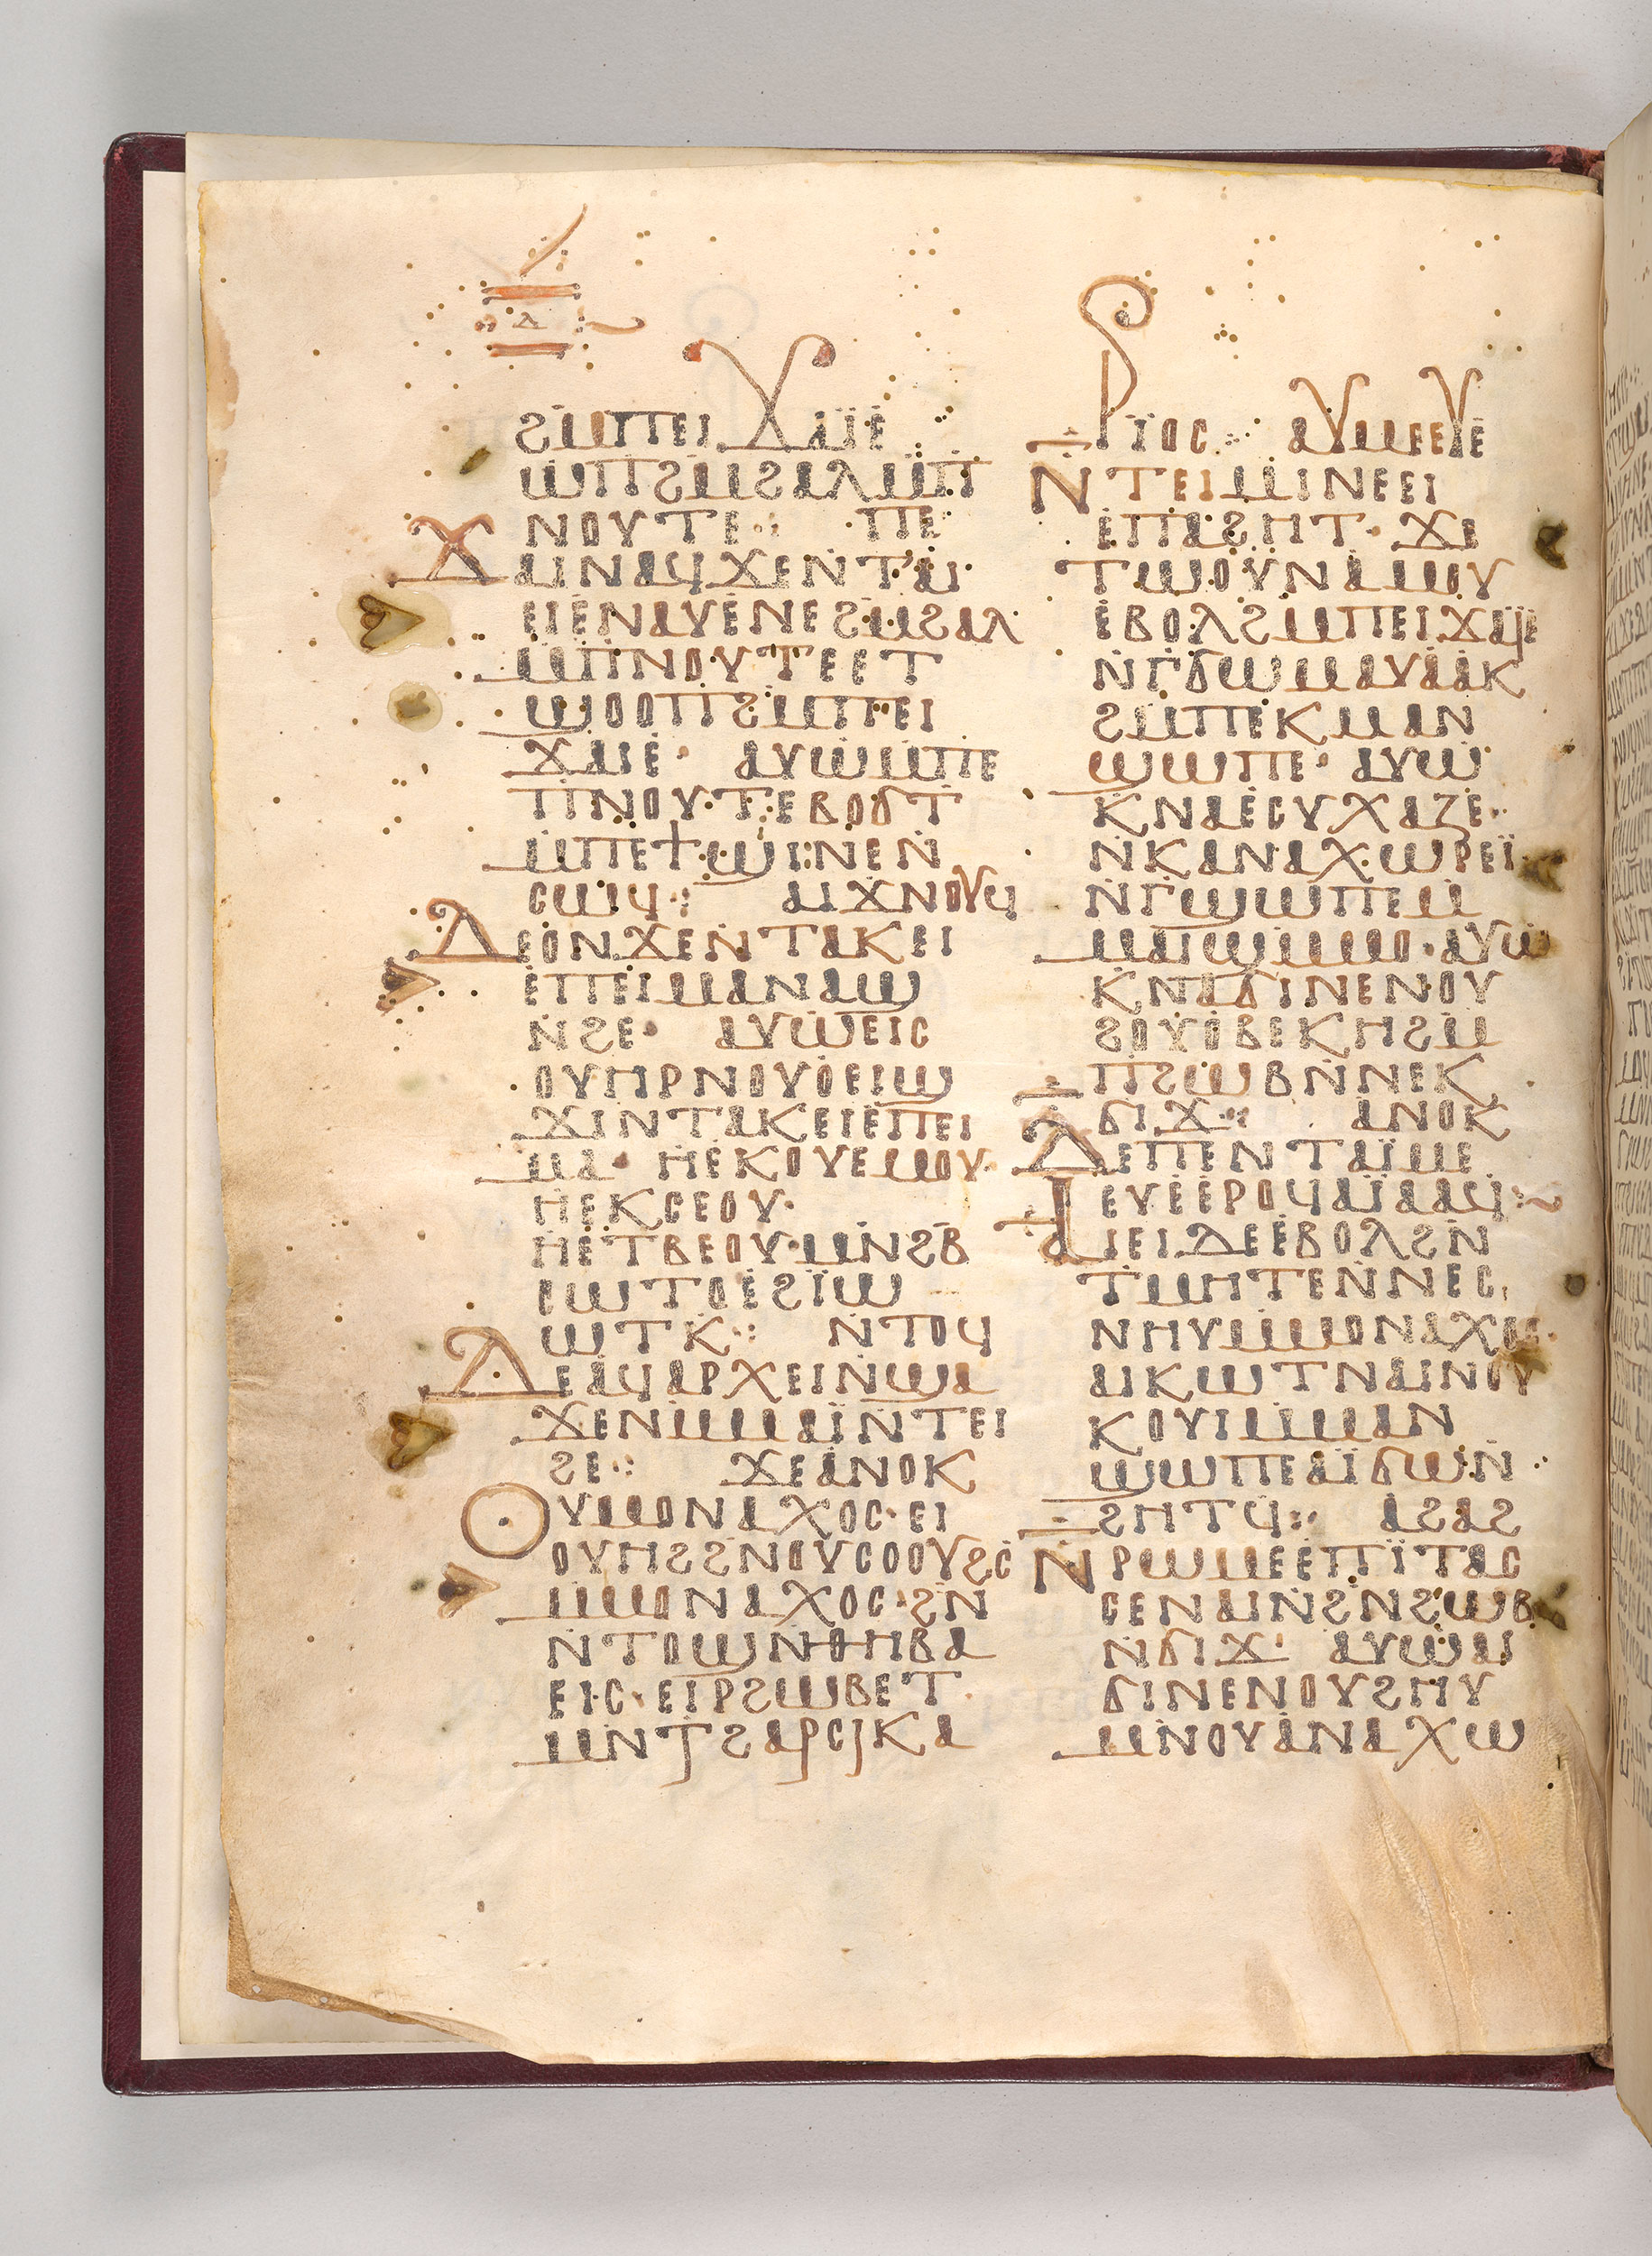 ⲇ
ϩⲙⲡⲉⲓϫⲁⲓⲉ
ϣⲡϩⲙϩⲁⲗⲙⲡ
ⲛⲟⲩⲧⲉ ⲡⲉ
ϫⲁⲓⲛⲁϥϫⲉⲛⲧⲁⲓ
ⲉⲓⲉⲛⲁⲩⲉⲛⲉϩⲙϩⲁⲗ
ⲙⲡⲛⲟⲩⲧⲉⲉⲧ
ϣⲟⲟⲡϩⲙⲡⲉⲓ
ϫⲁⲓⲉ· ⲁⲩⲱⲙⲡⲉ
ⲡⲛⲟⲩⲧⲉⲃⲟϭⲧ
ⲙⲡⲉϯϣⲓⲛⲉⲛ
ⲥⲱϥ⁘ ⲁⲓϫⲛⲟⲩϥ
ⲇⲉⲟⲛϫⲉⲛⲧⲁⲕⲉⲓ
ⲉⲡⲉⲓⲙⲁⲛⲁϣ
ⲛϩⲉ· ⲁⲩⲱⲉⲓⲥ
ⲟⲩⲏⲣⲛⲟⲩⲟⲉⲓϣ
ϫⲓⲛⲧⲁⲕⲉⲓⲉⲡⲉⲓ
ⲙⲁ· ⲏⲉⲕⲟⲩⲉⲙⲟⲩ·
ⲏⲉⲕⲥⲉⲟⲩ·
ⲏⲉⲧⲃⲉⲟⲩ·ⲙⲛϩⲃ
ⲥⲱⲧⲟⲉϩⲓⲱ
ⲱⲧⲕ⁘ ⲛⲧⲟϥ
ⲇⲉⲁϥⲁⲣⲭⲉⲓⲛϣⲁ
ϫⲉⲛⲙⲙⲁⲓⲛⲧⲉⲓ
ϩⲉ⁘ ϫⲉⲁⲛⲟⲕ
ⲟⲩⲙⲟⲛⲁⲭⲟⲥ·ⲉⲓ
ⲟⲩⲏϩϩⲛⲟⲩⲥⲟⲟⲩϩⲥ
ⲙⲙⲟⲛⲁⲭⲟⲥ·ϩⲛ
ⲛⲧⲟϣⲛⲑⲏⲃⲁ
ⲉⲓⲥ·ⲉⲓⲣϩⲱⲃⲉⲧ
ⲙⲛⲧϩⲁⲣϭⲓⲕⲁ
ⲣⲓⲟⲥ⁘ ⲁⲩⲙⲉⲉⲩⲉ
ⲛⲧⲉⲓⲙⲓⲛⲉⲉⲓ
ⲉⲡⲁϩⲏⲧ· ϫⲉ
ⲧⲱⲟⲩⲛⲁⲙⲟⲩ
ⲉⲃⲟⲗϩⲙⲡⲉⲓϫⲁⲓⲉ
ⲛⲅϭⲱⲙⲁⲩⲁⲁⲕ
ϩⲙⲡⲉⲕⲙⲁⲛ
ϣⲱⲡⲉ· ⲁⲩⲱ
ⲕⲛⲁⲉⲥⲩⲭⲁⲍⲉ·
ⲛⲕⲁⲛⲁⲭⲱⲣⲉⲓ
ⲛⲅϣⲱⲡⲉⲙ
ⲙⲁⲓϣⲙⲙⲟ·ⲁⲩⲱ
ⲕⲛⲁϭⲓⲛⲉⲛⲟⲩ
ϩⲟⲩⲟⲃⲉⲕⲏϩⲙ
ⲡϩⲱⲃⲛⲛⲉⲕ
ϭⲓϫ⁘ ⲁⲛⲟⲕ
ⲇⲉⲡⲉⲛⲧⲁⲓⲙⲉ
ⲉⲩⲉⲉⲣⲟϥⲁⲓⲁⲁϥ⁘
ⲁⲓⲉⲓⲇⲉⲉⲃⲟⲗϩⲛ
ⲧⲙⲏⲧⲉⲛⲛⲉⲥ
ⲛⲏⲩⲙⲙⲟⲛⲁⲭⲟⲥ·
ⲁⲓⲕⲱⲧⲛⲁⲓⲛⲟⲩ
ⲕⲟⲩⲓⲙⲙⲁⲛ
ϣⲱⲡⲉⲁⲓϭⲱⲛ
ϩⲏⲧϥ⁘ ⲁϩⲁϩ
ⲛⲣⲱⲙⲉⲉⲡⲓⲧⲁⲥ
ⲥⲉⲛⲁⲓⲛϩⲛϩⲱⲃ
ⲛϭⲓϫ· ⲁⲩⲱⲁⲓ
ϭⲓⲛⲉⲛⲟⲩϩⲏⲩ
ⲙⲛⲟⲩⲁⲛⲁⲭⲱ